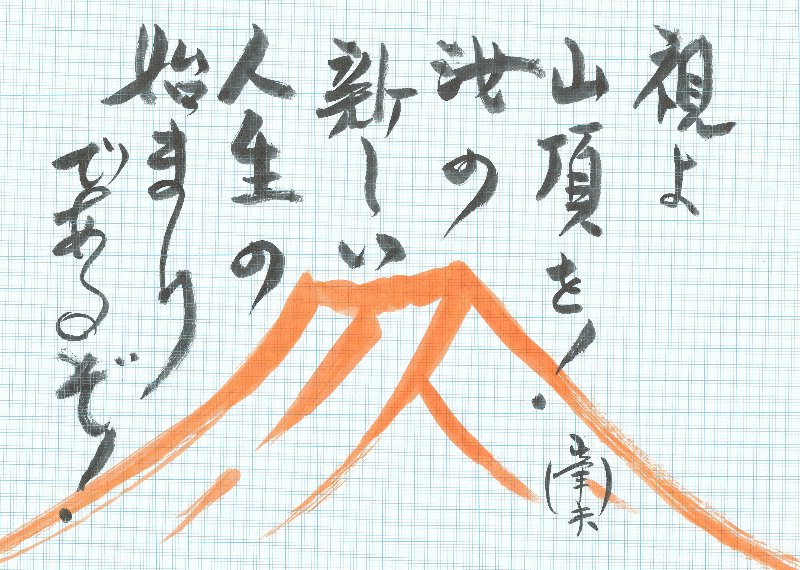 視よ
山頂を!
池の
新しい
人生の
始まり
であるぞ!